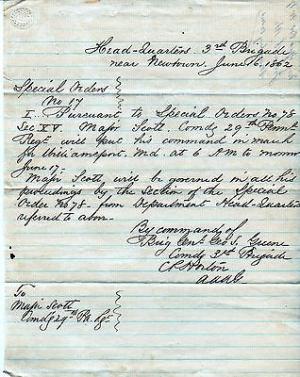 Head-Quarters 3rd Brigade
near Newtown June 16, 1862
Special Orders
No 17
I. Pursuant to Special Orders No 78
Sec XV. Major Scott, Comdg 29th Penna
Regt will put his command in march
for Williamsport, Md. at 6 A M to morrow
June 17.
Major Scott, will be governed in all his
proceedings by the Section of the Special
Order No 78. from Department Head-Quarters
referred to above.
By command of
Brig Genl Geo S. Greene
Comdg 3rd Brigade
C P Horton
A A A G
To
Major Scott
Comdg 29th Pa. Rgt